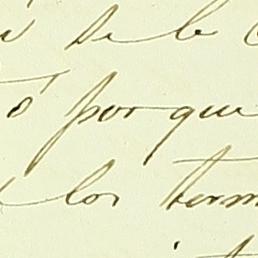 de le
ó por que
los term